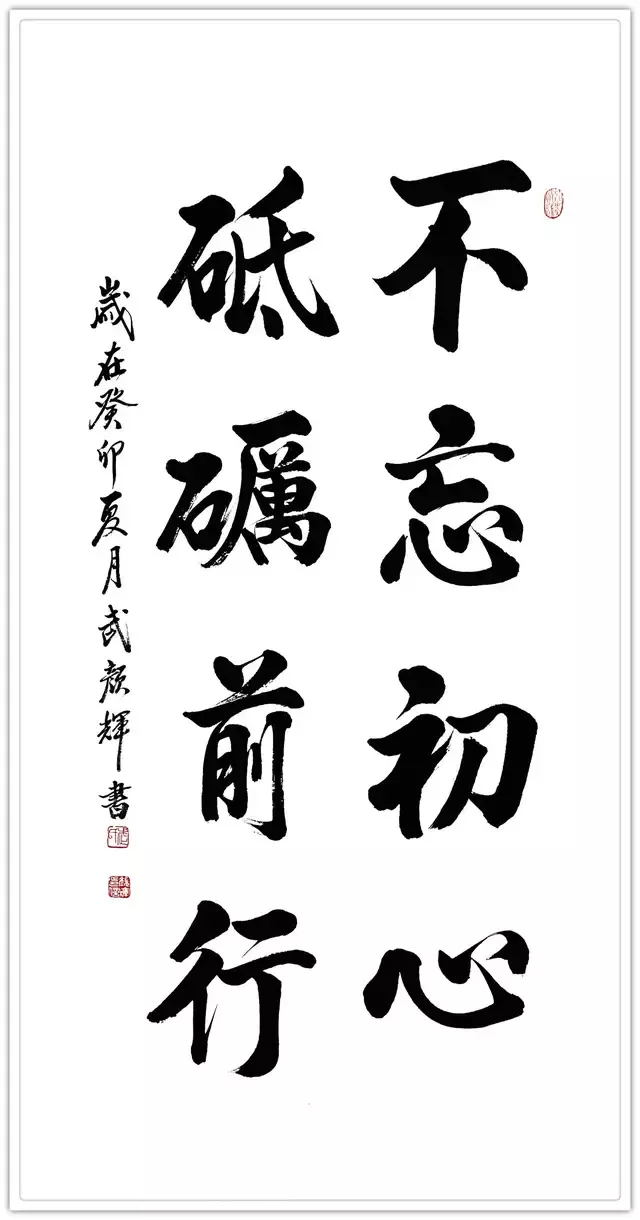 不忘初心
砥礪前行
歲在癸卯夏月武顏輝書